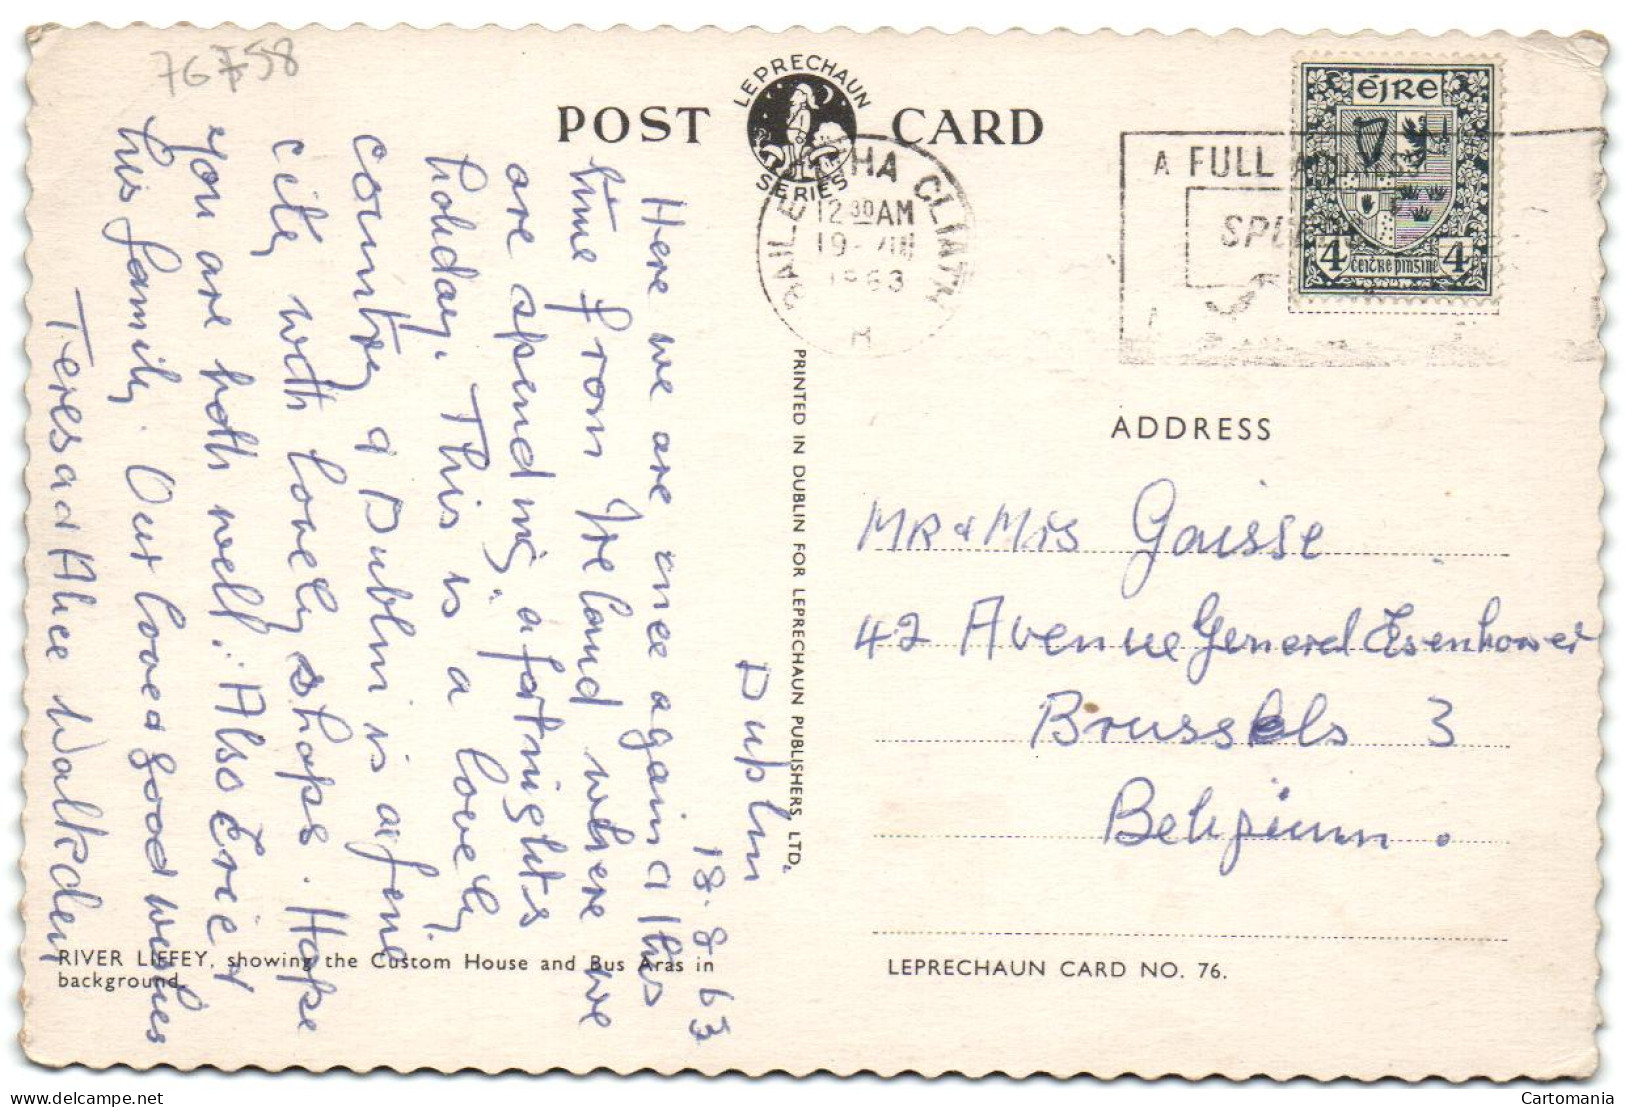 76758
POST CARD
LEPRECHAUN
SERIES
BAILE ÁTHA CLIATH
12 30AM
19 VIII
1963
A FULL ADDRESS
ÉIRE
4 ceitre pinsine 4
Dublin
18.8.63
Here we are once again this
time from Ireland where we
are spending, a fortnights
holiday. This is a lovely
country & Dublin is a fine
city with lovely shops. Hope
you are both well. Also Eric &
his family. Our love & good wishes
Teresa & Alice Walkden
PRINTED IN DUBLIN FOR LEPRECHAUN PUBLISHERS, LTD.
ADDRESS
MR & Mrs Gaisse
42 Avenue General Eisenhower
Brussels 3
Belgium.
RIVER LIFFEY, showing the Custom House and Bus Aras in
background.
LEPRECHAUN CARD NO. 76.
www.delcampe.net
Cartomania